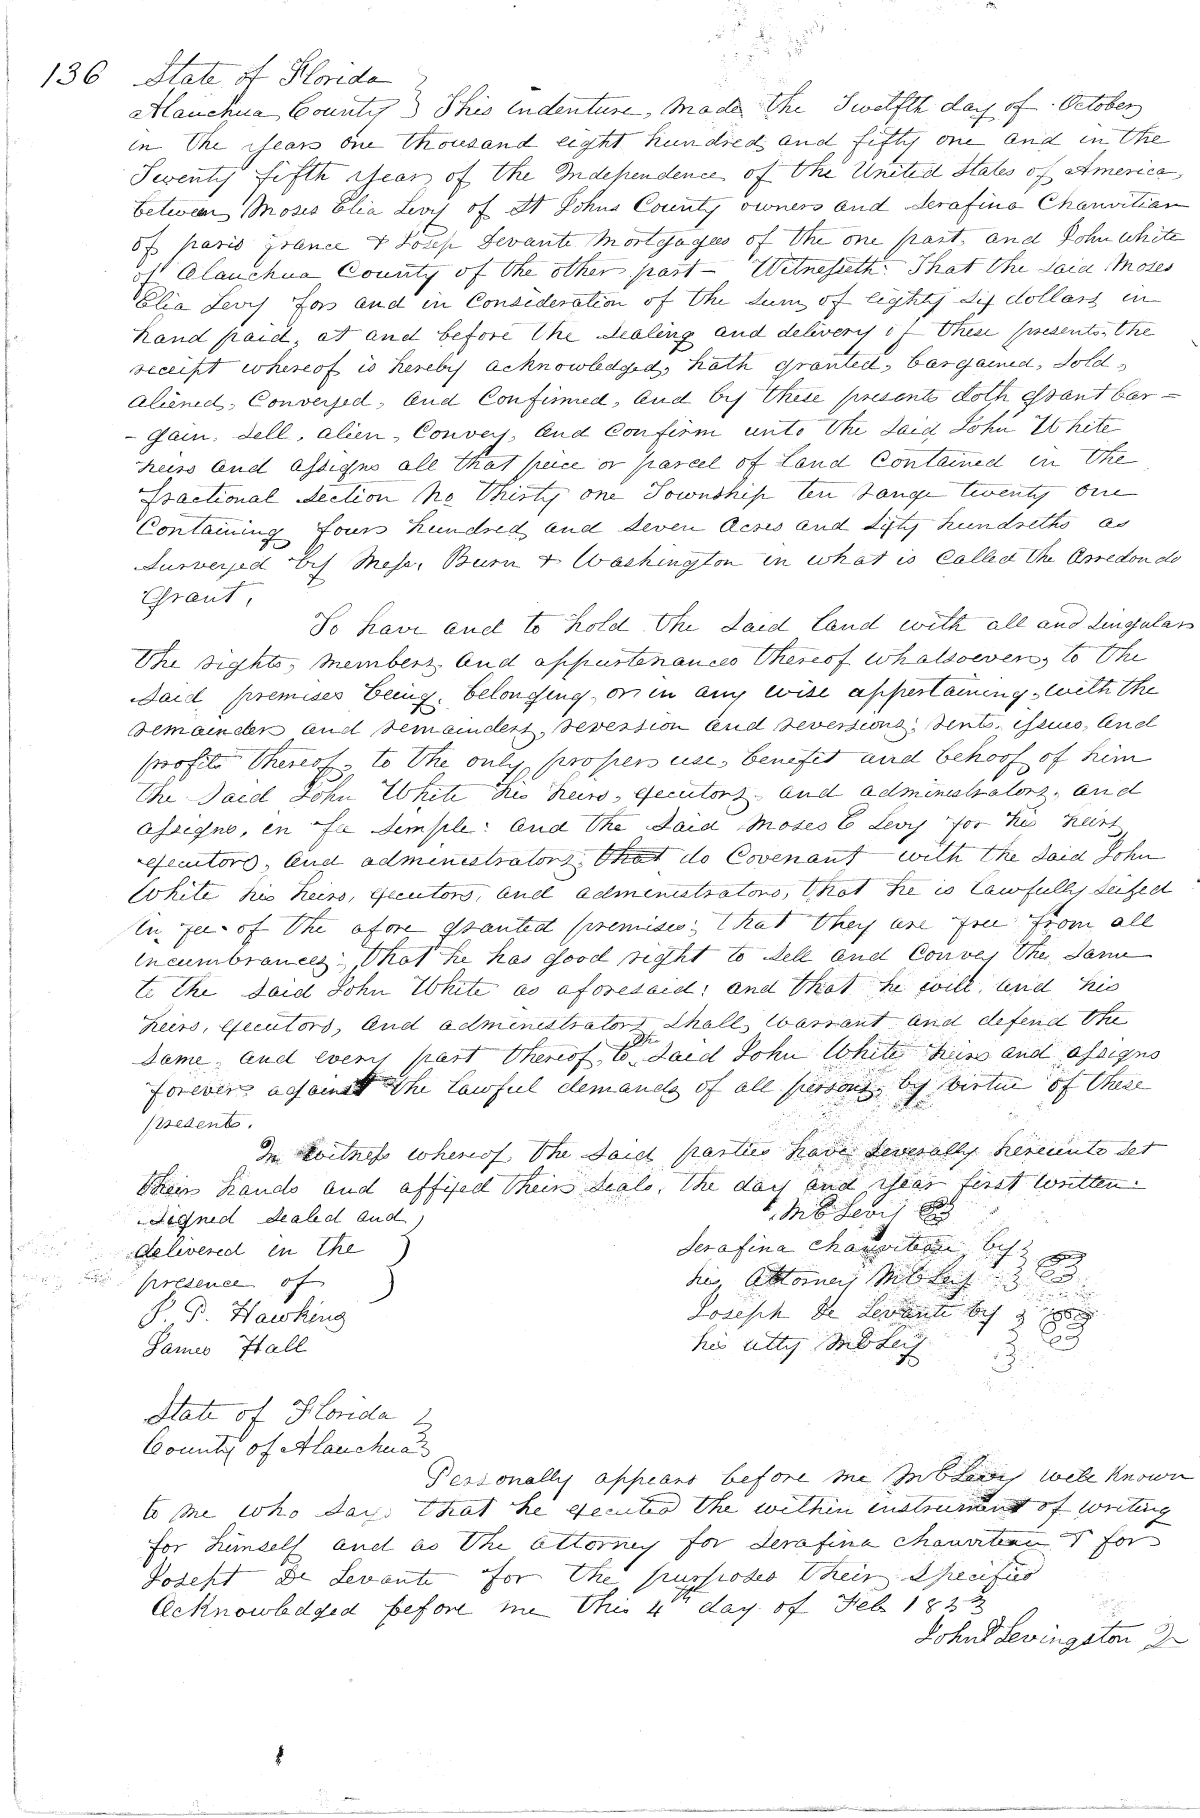 136 State of Florida
Alauchua County } This indenture, made the Twelfth day of October
in the year one thousand eight hundred and fifty one and in the
Twenty fifth year of the Independence of the United States of America,
between Moses Elia Levy of St Johns County owners and Serafina Chauvitian
of paris france & Josep Devante Mortgagees of the one part, and John white
of Alauchua County of the other part - Witnesseth: That the said Moses
Elia Levy for and in Consideration of the sum of eighty six dollars in
hand paid, at and before the sealing and delivery of these presents, the
receipt whereof is hereby acknowledged, hath granted, bargained, sold,
aliened, Conveyed, and Confirmed, and by these presents doth grant bar-
-gain, sell, alien, Convey, and Confirm unto the said John White
heirs and assigns all that peice or parcel of land Contained in the
fractional section No thirty one Township ten range twenty one
Containing four hundred and seven Acres and sixty hundreths as
surveyed by Mess. Burn & Washington in what is Called the Arredondo
Grant.
To have and to hold the said land with all and singular
the rights, members, and appurtenances thereof whatsoever, to the
said premises being, belonging, or in any wise appertaining, with the
remainder and remainders, reversion and reversions, rents, issues, and
profits thereof, to the only, proper use, benefit and behoof of him
the said John White his heirs, executors, and administrators, and
assigns, in fee simple: and the said Moses E Levy for his heirs,
executors, and administrators, that do Covenant with the said John
White his heirs, executors, and administrators, that he is lawfully seized
in fee of the afore granted premises; that they are free from all
incumbrances; that he has good right to sell and Convey the same
to the said John White as aforesaid; and that he will, and his
heirs, executors, and administrators shall, warrant and defend the
same, and every part thereof, to the said John White heirs and assigns
forever against the lawful demands of all persons, by virtue of these
presents.
In witness whereof, the said parties have severally hereunto set
their hands and affixed their seals, the day and year first written.
Signed sealed and
delivered in the
presence of
P. P. Hawking
James Hall
M E Levy
Serafina Chauvitian by
his Attorney M E Levy
Joseph De Levante by
his atty M E Levy
State of Florida
County of Alauchua
Personally appears before me M E Levy well Known
to me who says that he executed the within instrument of writing
for himself and as the attorney for Serafina Chauvitian & for
Joseph De Levante for the purposes their specified
Acknowledged before me this 4th day of Feb 1833
John Levingston